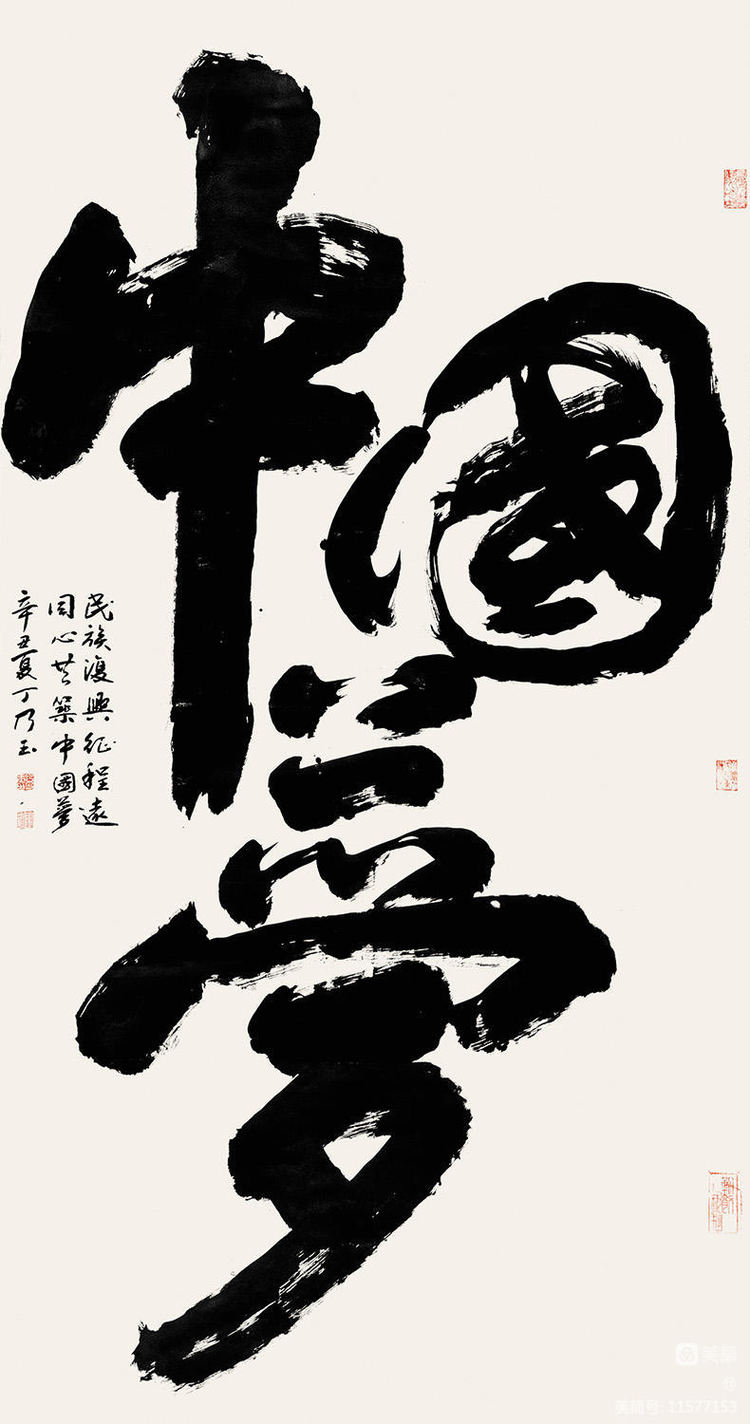 中國夢
民族復興征程遠
同心共築中國夢
辛丑夏丁乃玉
美篇
美篇号: 11577153